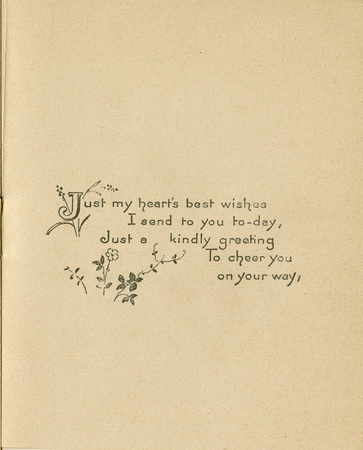 Just my heart's best wishes
I send to you to-day,
Just a kindly greeting
To cheer you
on your way,